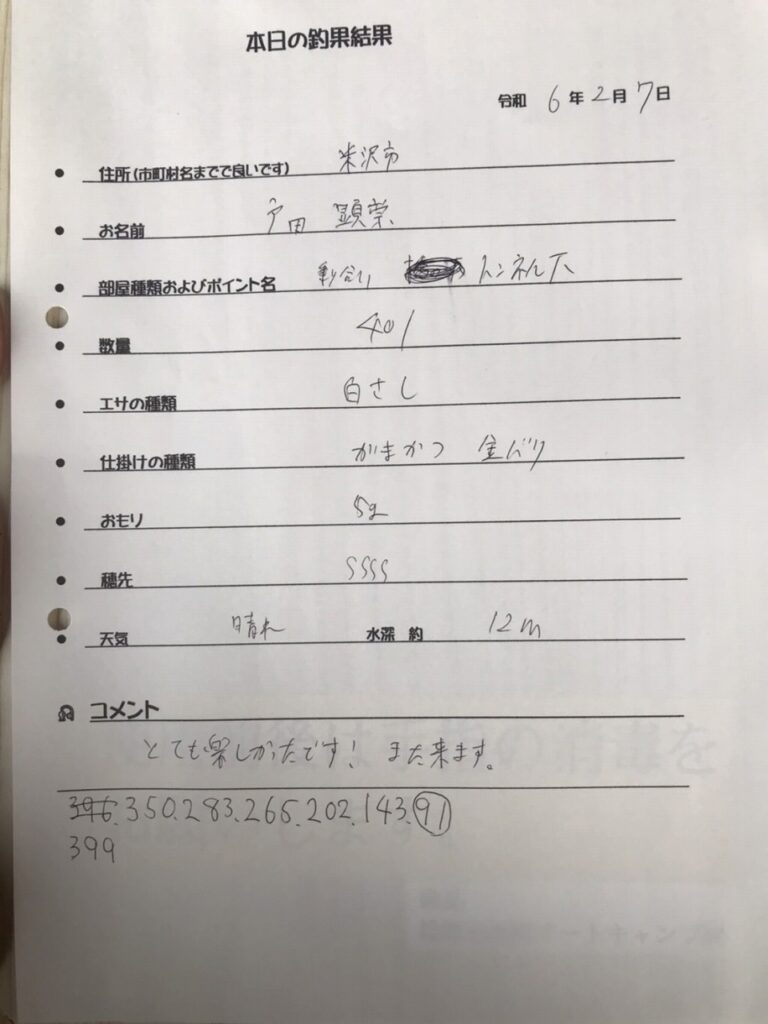 本日の釣果結果
令和 6年2月7日
住所(市町村名までで良いです) 米沢市
お名前 戸田 顕栄
部屋種類およびポイント名 乗り合い トンネル下
数量 401
エサの種類 白さし
仕掛けの種類 がまかつ 金バリ
おもり 5g
穂先 SSSS
天気 晴れ 水深 約 12m
コメント
とても楽しかたです! また来ます。
396.350.283.265.202.143.91
399